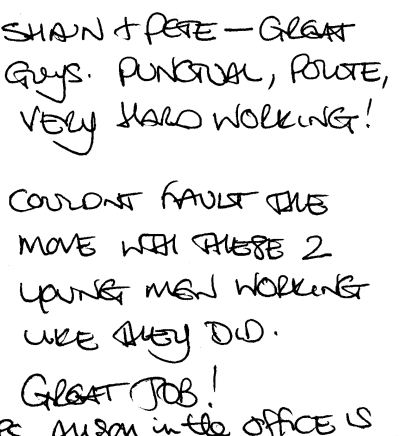 SHAUN + PETE — GREAT
GUYS. PUNCTUAL, POLITE,
VERY HARD WORKING!
COULDNT FAULT THE
MOVE WITH THESE 2
YOUNG MEN WORKING
LIKE THEY DID.
GREAT JOB!
in the OFFICE IS